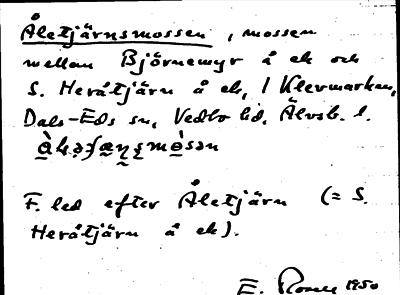 Åletjärnsmossen, mossen
mellan Björnemyr å ek och
S. Heråtjärn å ek, i Klevmarken,
Dals-Eds sn, Vedbo hd, Älvsb. l.
F. led efter Åletjärn (= S.
Heråtjärn å ek).
E. 1950